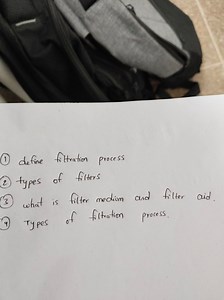 ① define filtration process
② types of filters
③ what is filter medium and filter aid.
④ Types of filtration process.